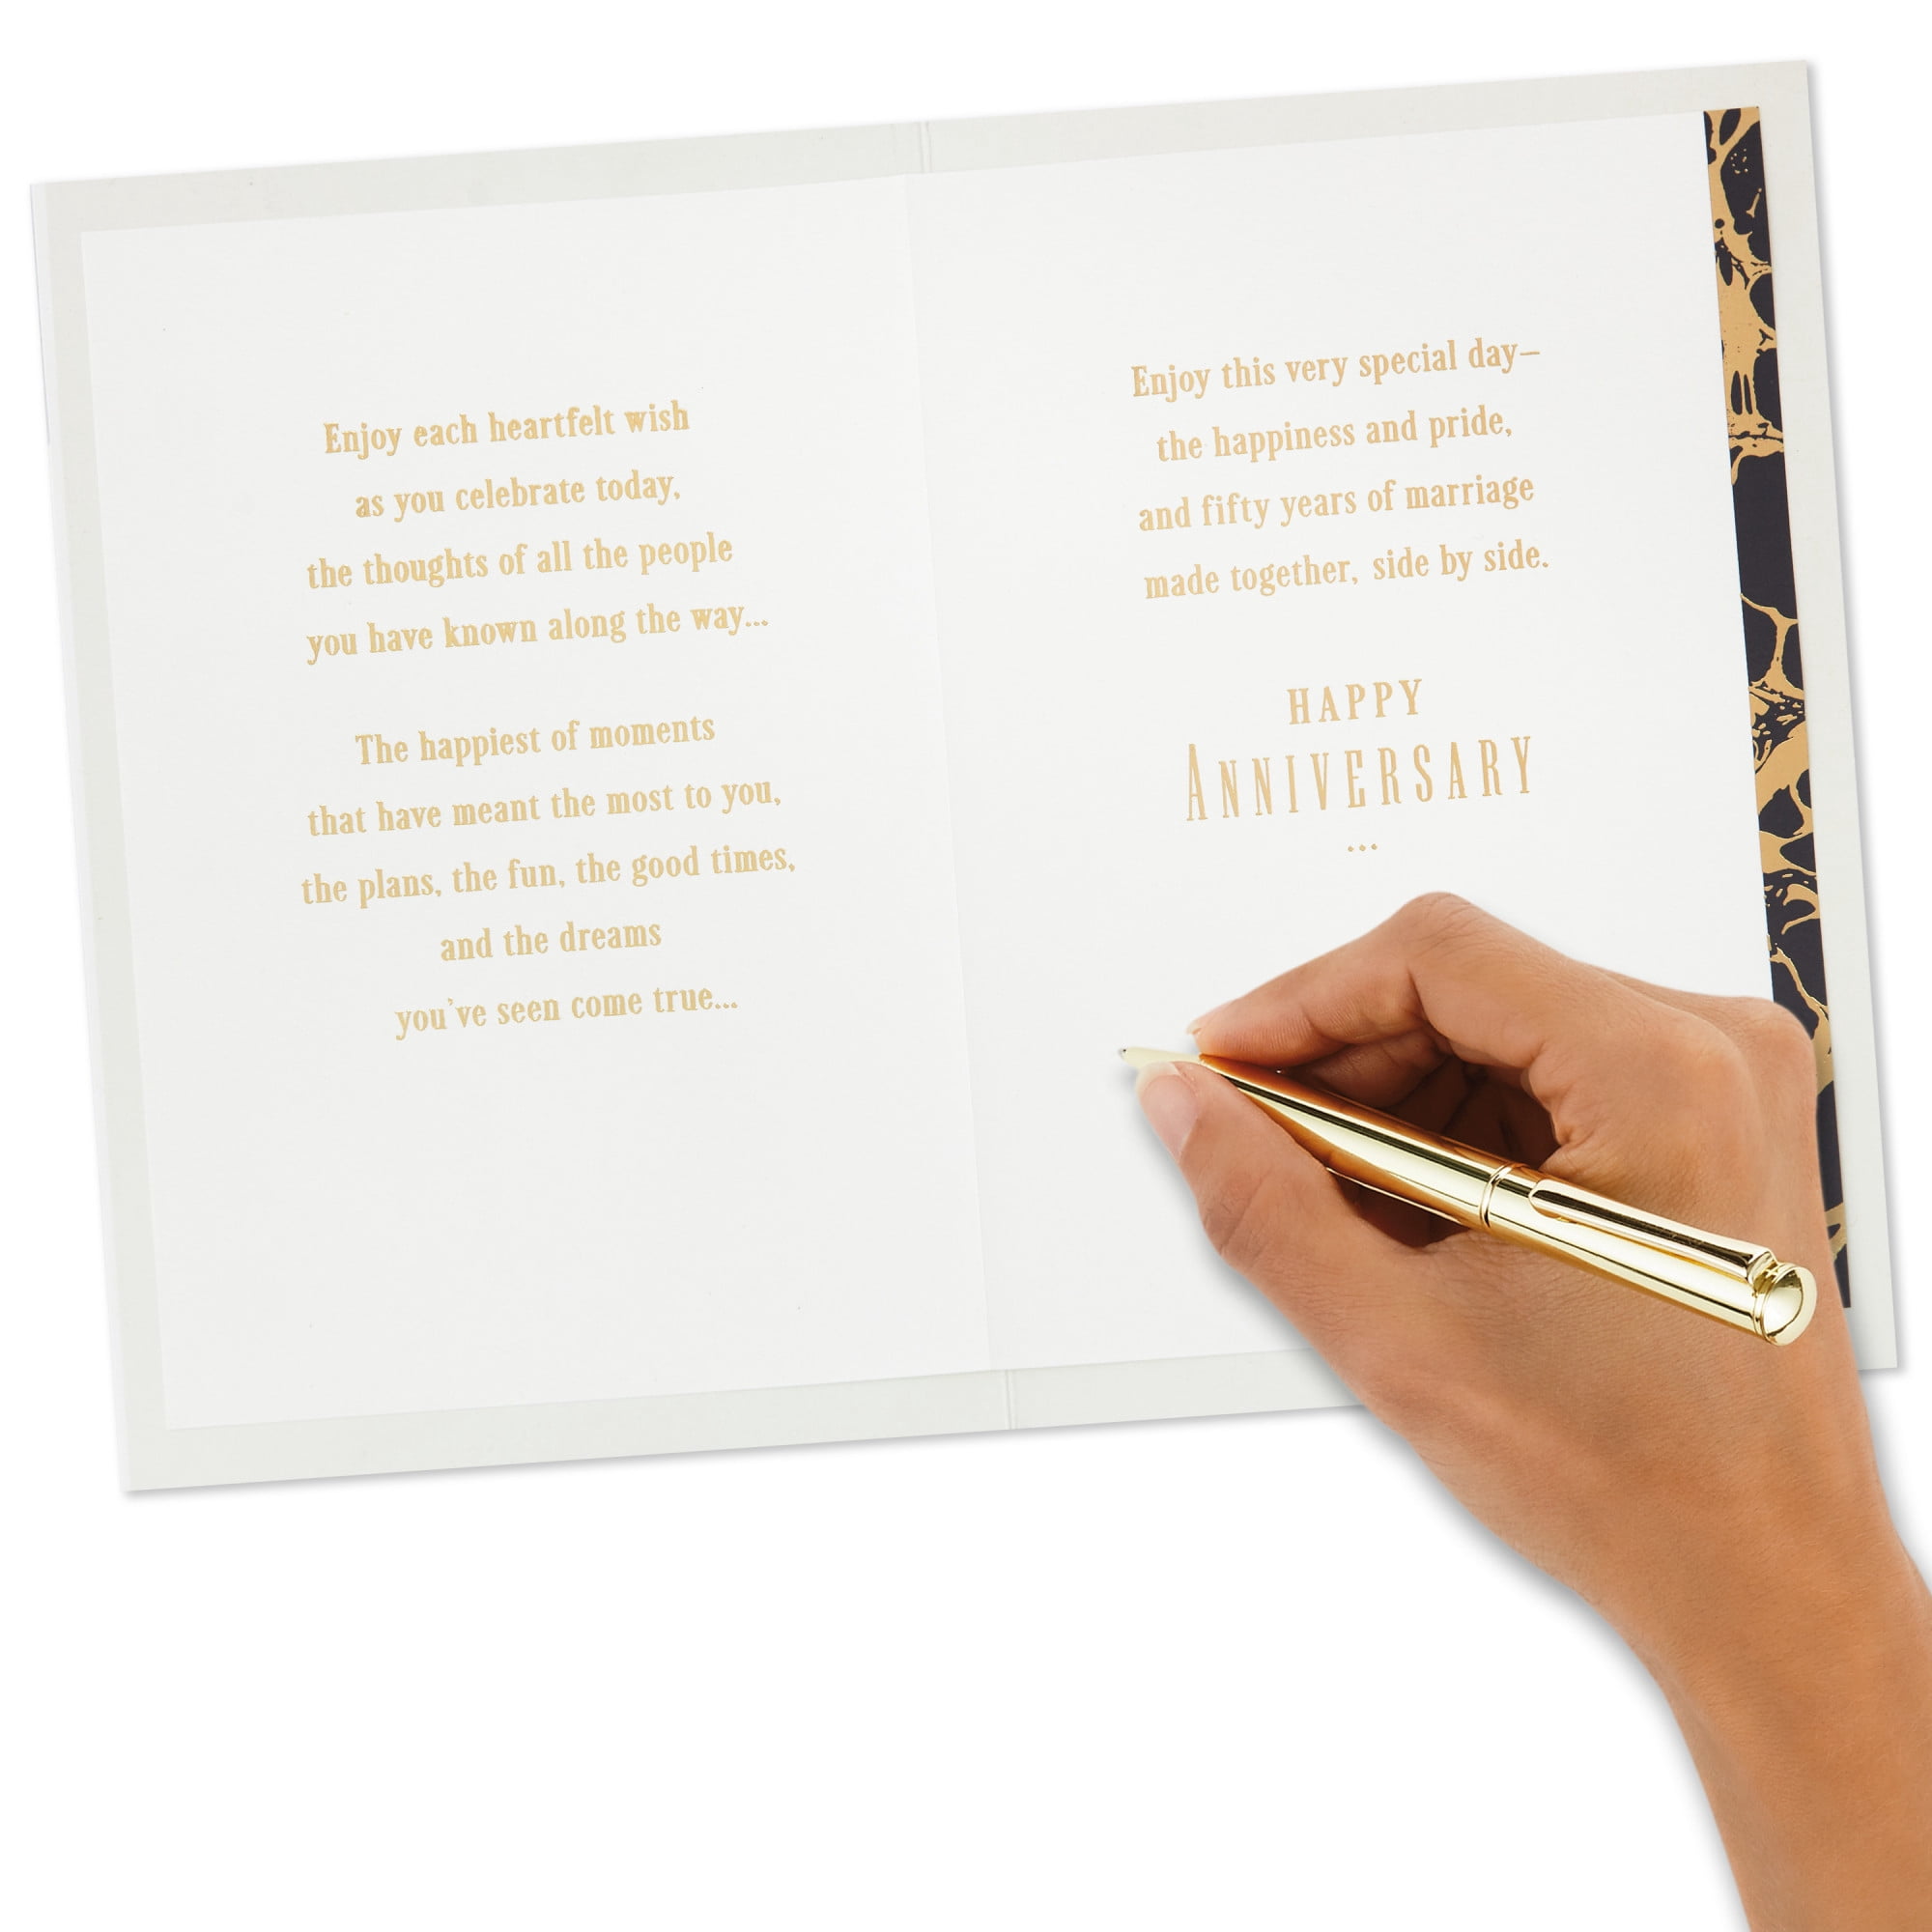 Enjoy each heartfelt wish
as you celebrate today,
the thoughts of all the people
you have known along the way...
The happiest of moments
that have meant the most to you,
the plans, the fun, the good times,
and the dreams
you've seen come true...
Enjoy this very special day–
the happiness and pride,
and fifty years of marriage
made together, side by side.
HAPPY
ANNIVERSARY
...